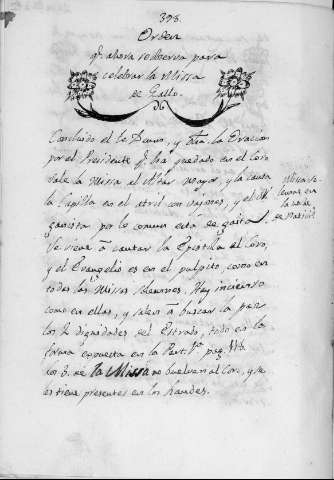 393.
Orden
q.e ahora se observa para
celebrar la Missa
de Gallo.
Concluido el Te Deum, y dha. la Oracion
por el Presidente q.e ha quedado en el Coro
sale la Missa al Altar mayor, y la canta
la Capilla en el atril con vajones, y el
ganista por lo comun esta de gaita.
Se viene a cantar la Epistola al Coro,
y el Evangelio es en el pulpito, como en
todas las Missas solemnes. Hay incienso
como en ellas, y salen a buscar la paz
los 2 dignidades del Estrado, todo en la
forma expuesta en la Part. 1.a pag. 116.
los de la Missa no buelven al Coro, y se
les tiene presentes en los Laudes.
Missa so-
lemne en
la noche
de Navidad